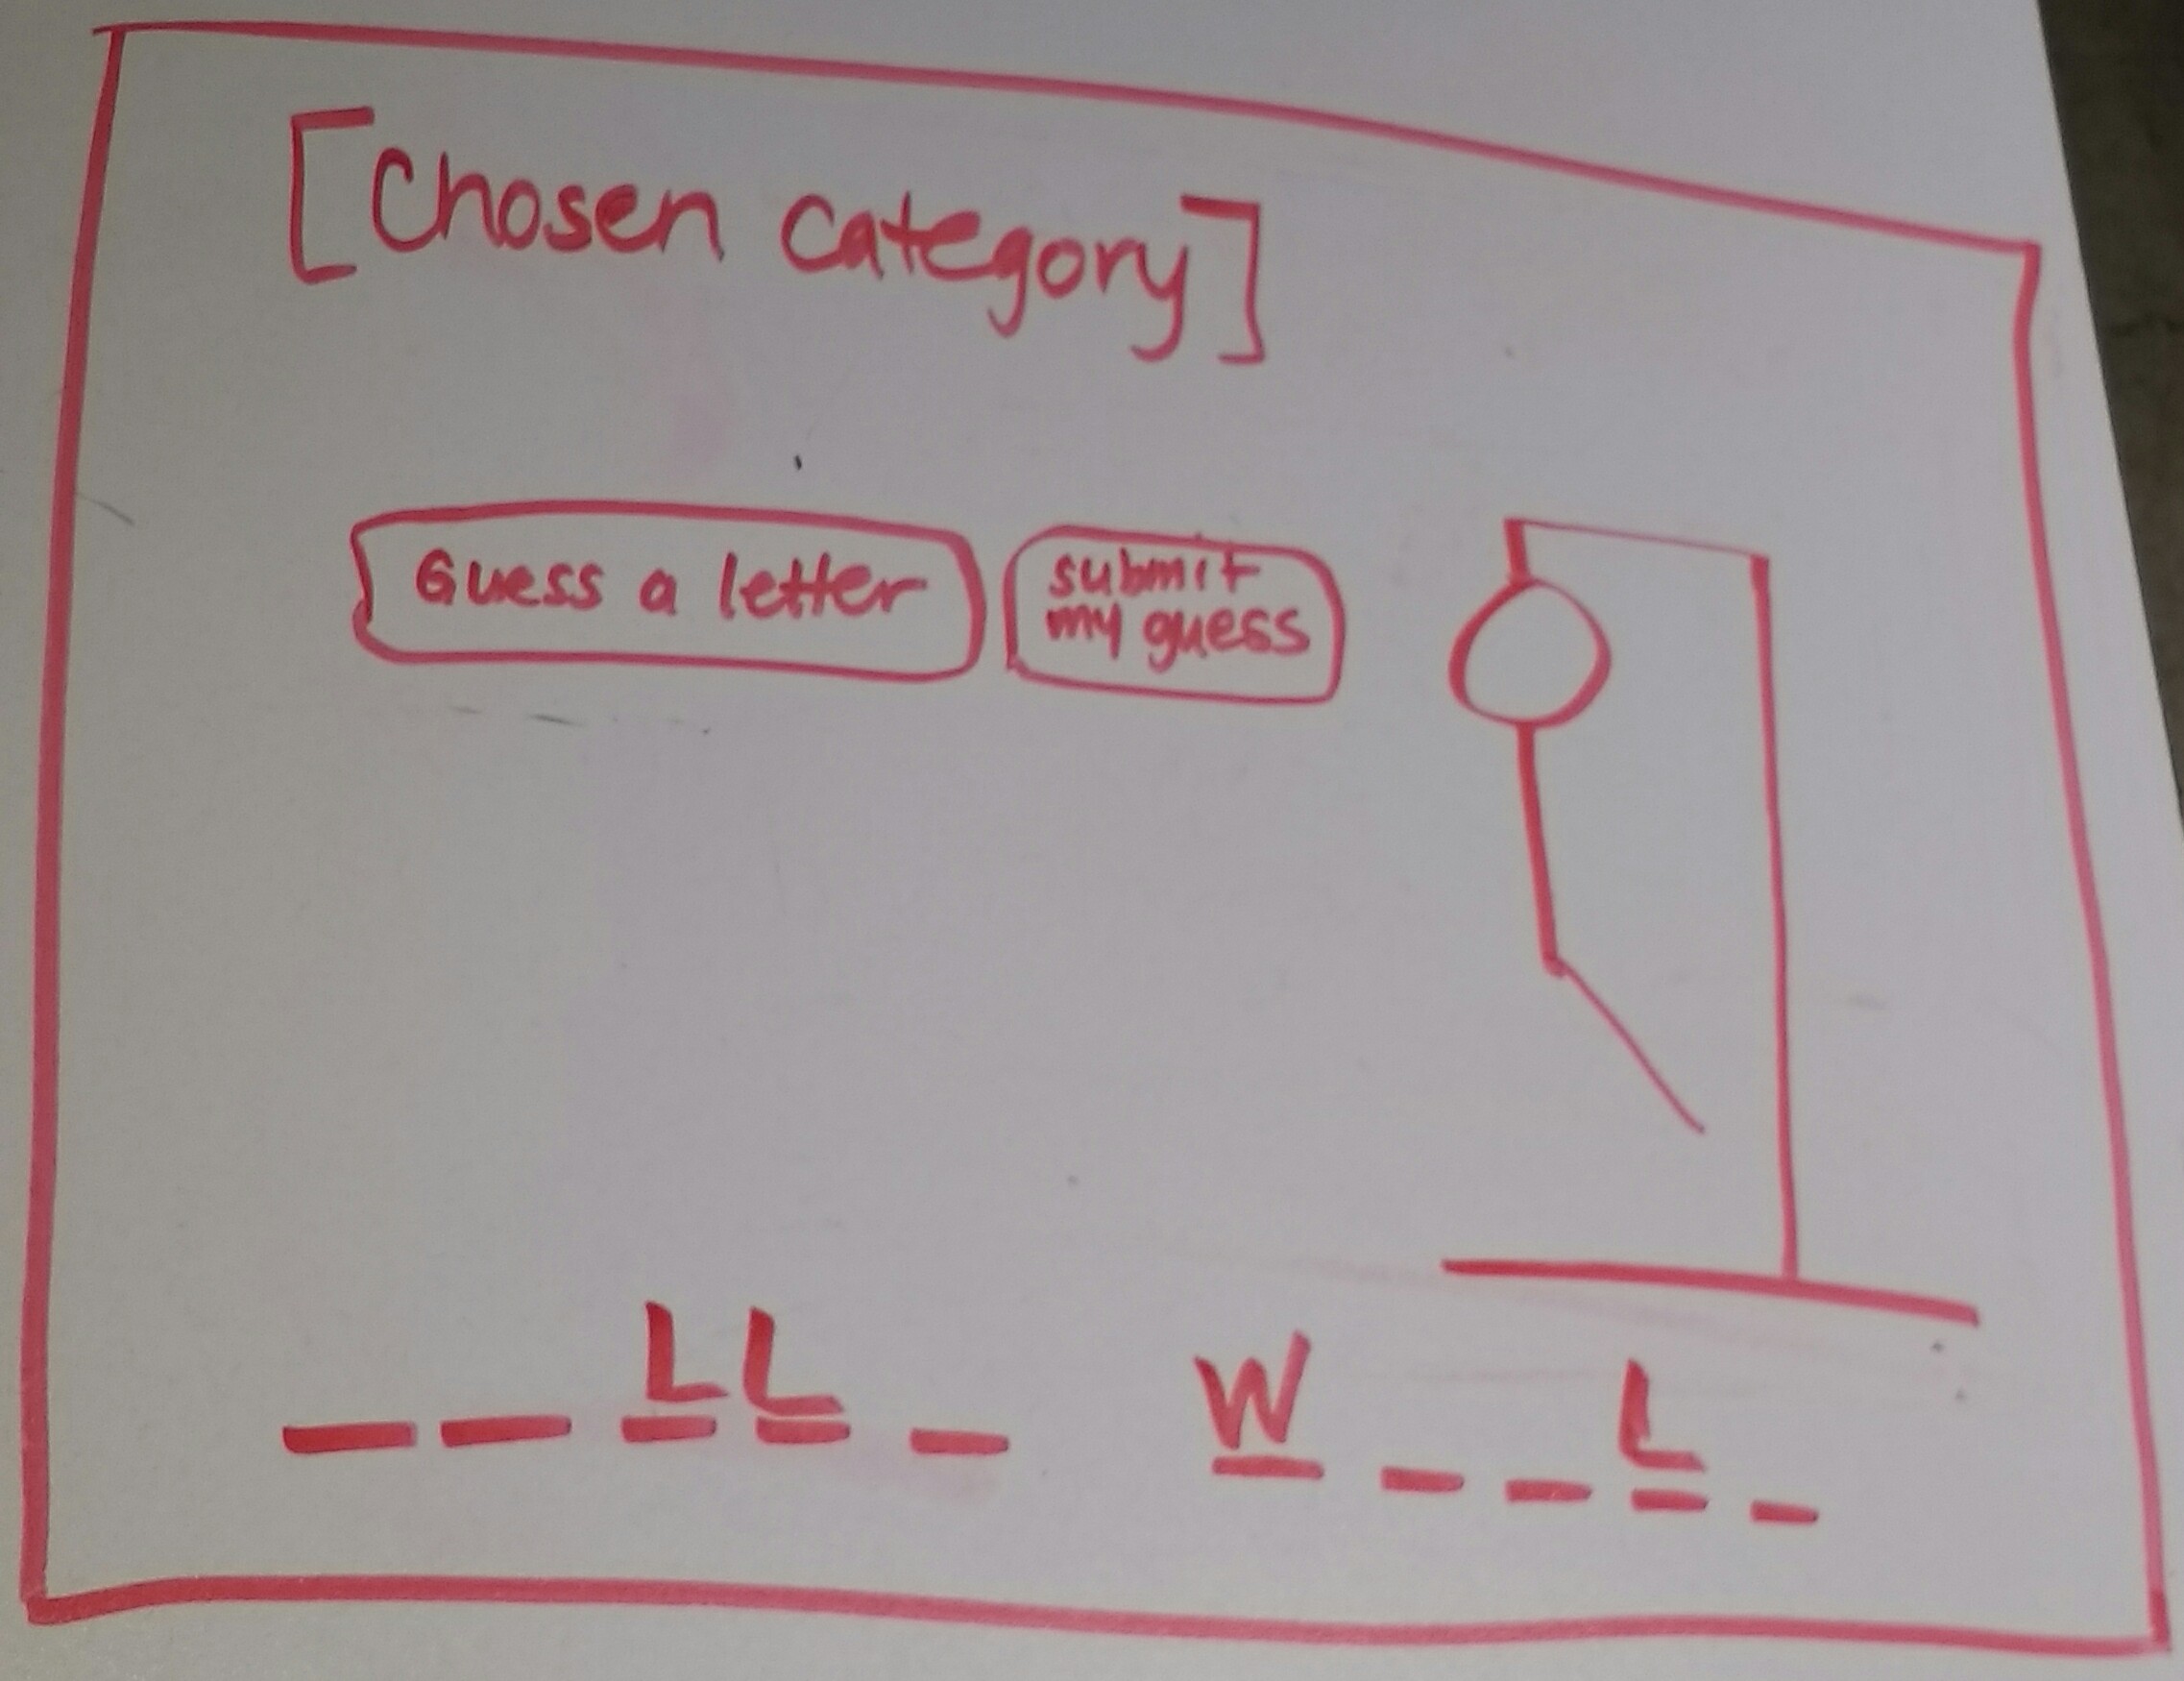 [Chosen category]
Guess a letter
submit
my guess
_ _ L L _ W _ _ L _